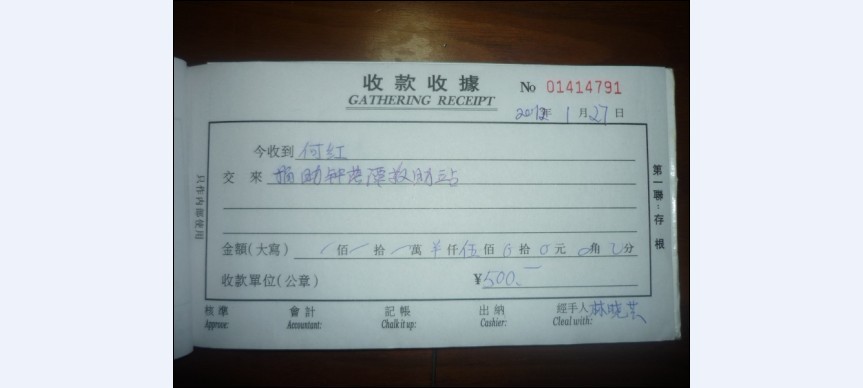 收款收據 No 01414791
GATHERING RECEIPT
2012年1月27日
今收到 何红
交來 捐助钟落潭救助站
金額(大寫) 佰 拾 萬 ¥仟伍佰0拾0元0角0分
收款單位(公章) ¥500.—
核準 會計 記帳 出納 經手人 林晓
Approve: Accountant: Chalk it up: Cashier: Cleal with:
只作內部使用
第一聯:存根